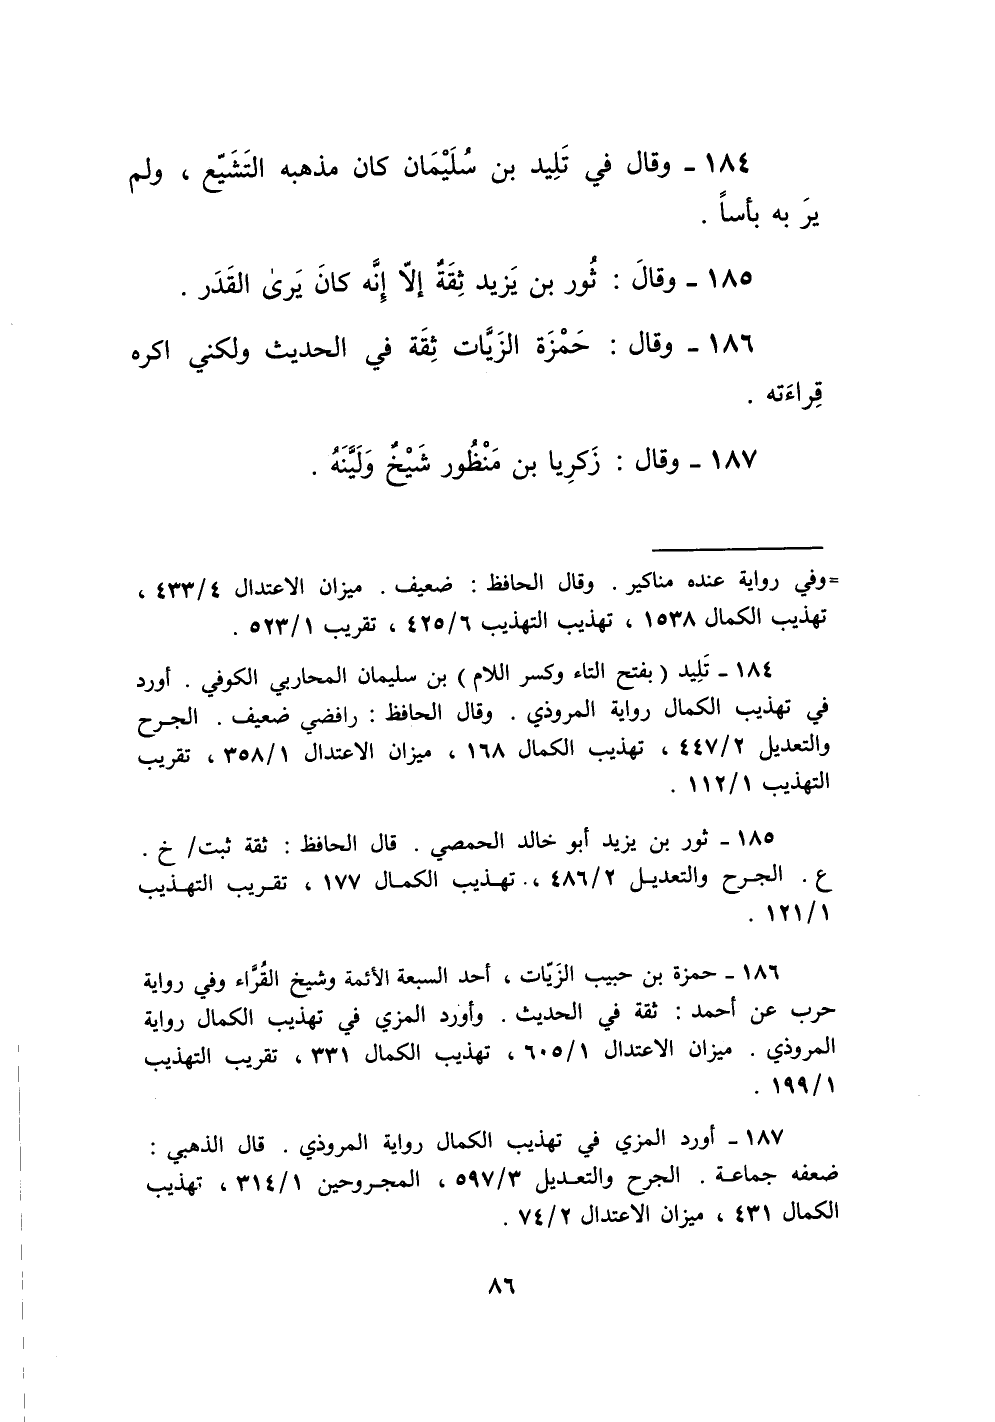 ١٨٤ ـ وقال في تَلِيد بن سُلَيْمَان كان مذهبه التَشَيّع ، ولم
يرَ به بأساً .
١٨٥ ـ وقالَ : ثُور بن يَزيد ثِقَةٌ إلاّ إِنَّه كانَ يَرىٰ القَدَر .
١٨٦ ـ وقال : حَمْزَة الزَيَّات ثِقَة في الحديث ولكني اكره
قِراءَته .
١٨٧ ـ وقال : زَكرِيا بن مَنْظُور شَيْخٌ وَلَيَّنَهُ .
=وفي رواية عنده مناكير . وقال الحافظ : ضعيف . ميزان الاعتدال ٤٣٣/٤ ،
تهذيب الكمال ١٥٣٨ ، تهذيب التهذيب ٤٢٥/٦ ، تقريب ٥٢٣/١ .
١٨٤ ـ تَلِيد ( بفتح التاء وكسر اللام ) بن سليمان المحاربي الكوفي . أورد
في تهذيب الكمال رواية المروذي . وقال الحافظ : رافضي ضعيف . الجرح
والتعديل ٤٤٧/٢ ، تهذيب الكمال ١٦٨ ، ميزان الاعتدال ٣٥٨/١ ، تقريب
التهذيب ١١٢/١ .
١٨٥ ـ ثور بن يزيد أبو خالد الحمصي . قال الحافظ : ثقة ثبت/ خ .
ع . الجرح والتعديل ٤٨٦/٢ ، تهذيب الكمال ١٧٧ ، تقريب التهذيب
١٢١/١ .
١٨٦ ـ حمزة بن حبيب الزَيّات ، أحد السبعة الأئمة وشيخ القُرَّاء وفي رواية
حرب عن أحمد : ثقة في الحديث . وأورد المزي في تهذيب الكمال رواية
المروذي . ميزان الاعتدال ٦٠٥/١ ، تهذيب الكمال ٣٣١ ، تقريب التهذيب
١٩٩/١ .
١٨٧ ـ أورد المزي في تهذيب الكمال رواية المروذي . قال الذهبي :
ضعفه جماعة . الجرح والتعديل ٥٩٧/٣ ، المجروحين ٣١٤/١ ، تهذيب
الكمال ٤٣١ ، ميزان الاعتدال ٧٤/٢ .
٨٦